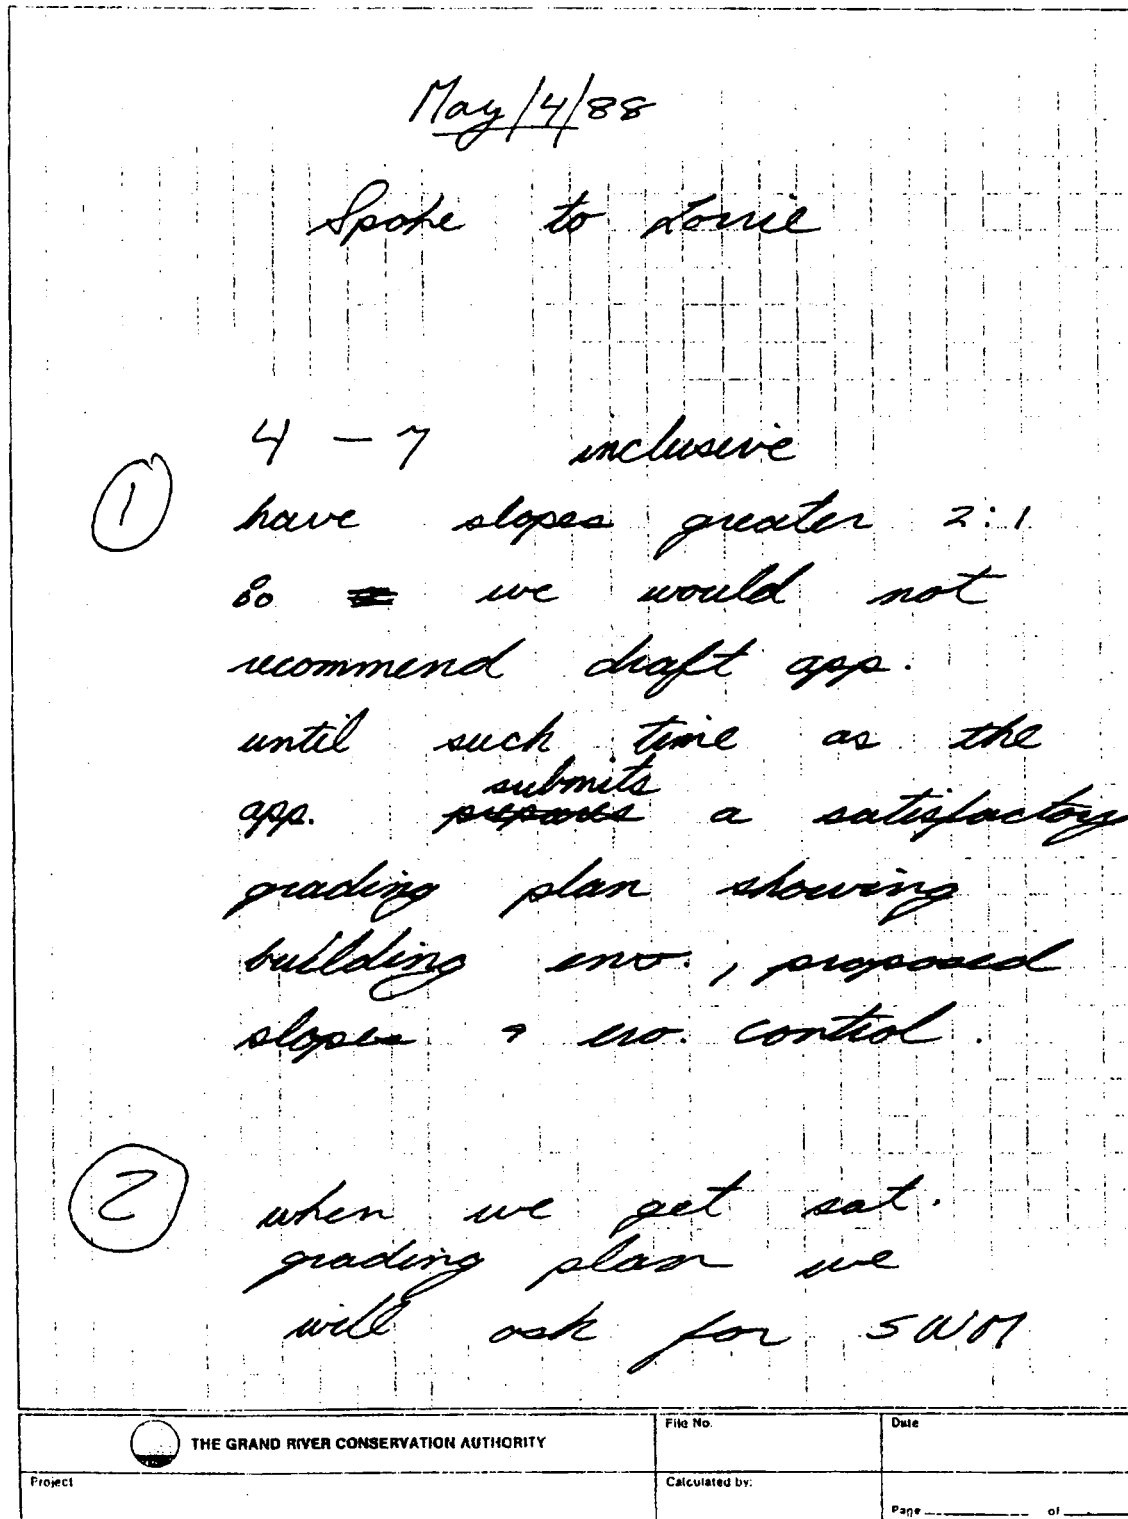 May/4/88
Spoke to Lorrie
4 – 7 inclusive
① have slopes greater 2:1
so we would not
recommend draft app.
until such time as the
submits
app. prepares a satisfactory
grading plan showing
building env., proposed
slopes & ero. control.
② when we get sat.
grading plan we
will ask for SWM
THE GRAND RIVER CONSERVATION AUTHORITY
File No.
Date
Project
Calculated by:
Page of